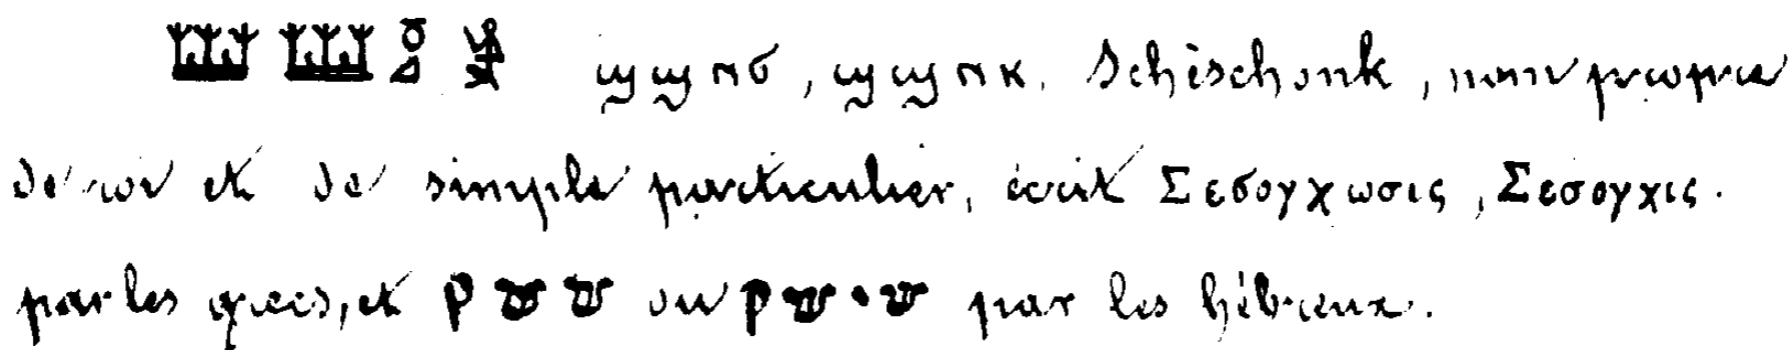 𓆷𓆷 ϣϣⲛϭ, ϣϣⲛⲕ. Schèschonk, nom propre
de roi et de simple particulier, écrit Σεσογχωσις, Σεσογχις.
par les grecs, et ששק ou שישק par les hébreux.